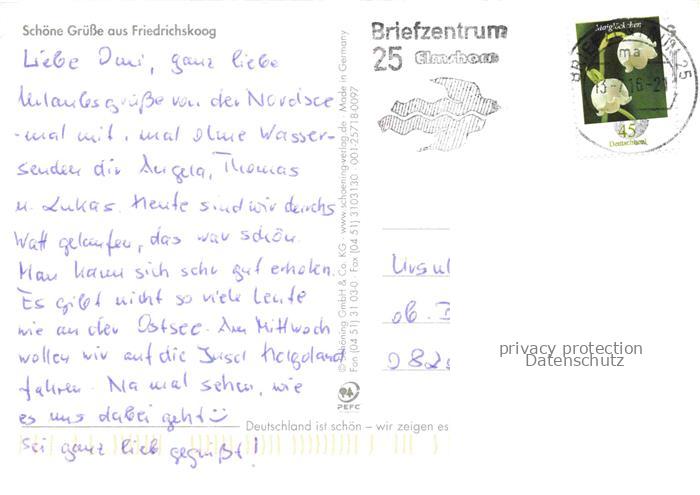 Schöne Grüße aus Friedrichskoog
Liebe Omi, ganz liebe
Urlaubsgrüße von der Nordsee
- mal mit, mal ohne Wasser -
senden dir Angela, Thomas
u. Lukas. Heute sind wir durchs
Watt gelaufen, das war schön.
Man kann sich sehr gut erholen.
Es gibt nicht so viele Leute
wie an der Ostsee. Am Mittwoch
wollen wir auf die Insel Helgoland
fahren. Na mal sehen, wie
es uns dabei geht
Sei ganz lieb gegrüßt!
© Schöning GmbH & Co. KG · www.schoening-verlag.de · Made in Germany
Fon (04 51) 31 03-0 · Fax (04 51) 3103130 · 001-25718-0097
PEFC
Deutschland ist schön – wir zeigen es
Briefzentrum
25 Elmshorn
Maiglöckchen
45
Deutschland
Ursul
ob.
082
privacy protection
Datenschutz